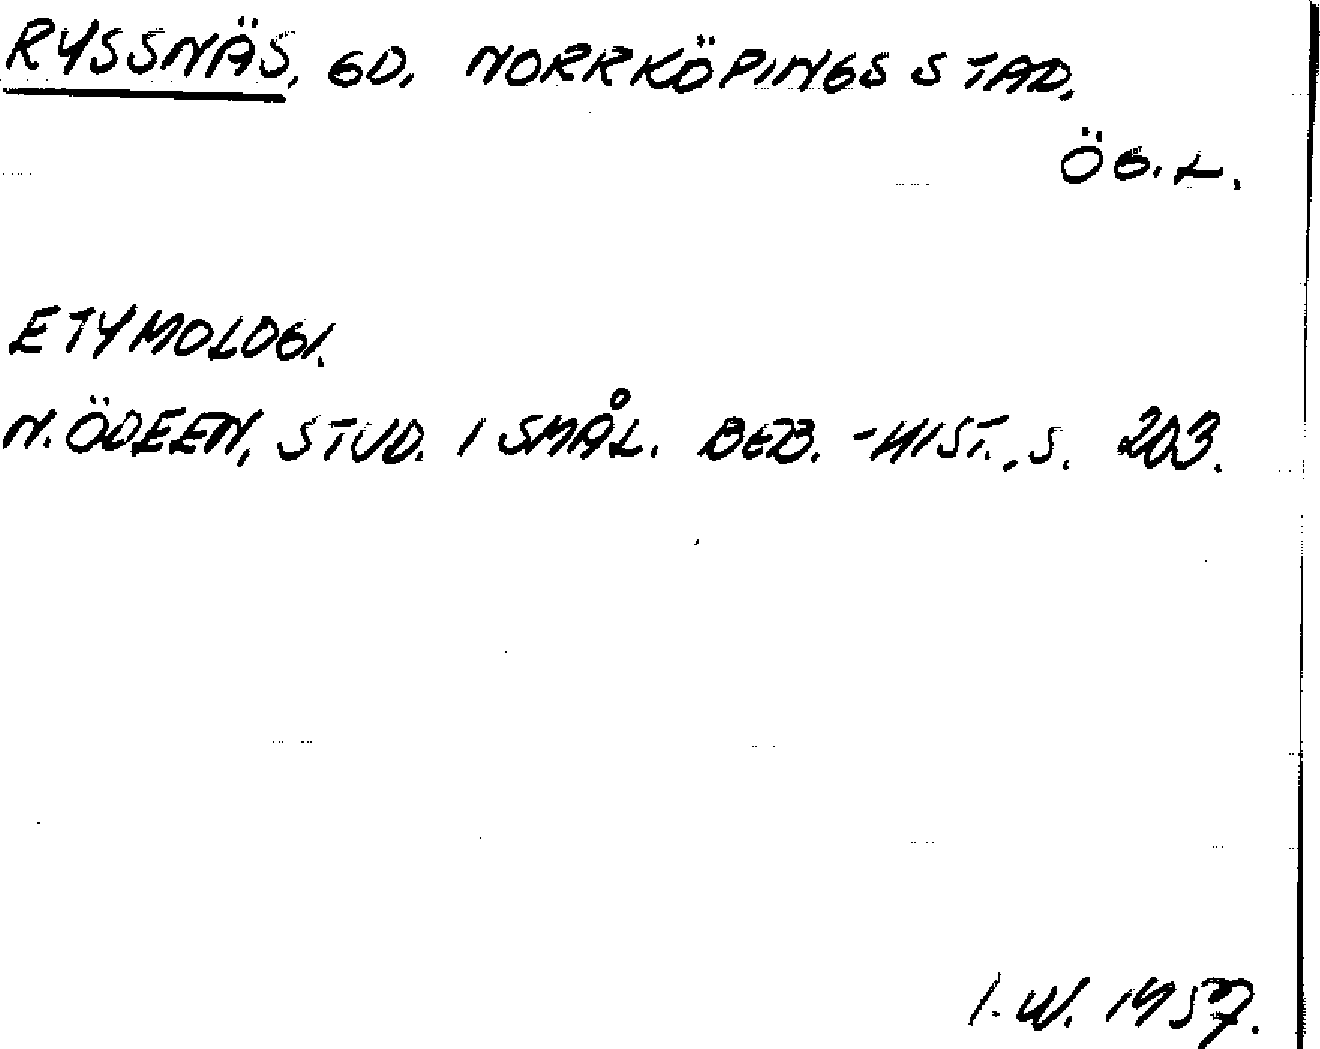 RYSSNÄS, GD. NORRKÖPINGS STAD.
ÖG.L.
ETYMOLOGI.
N. ÖDEEN, STUD. I SMÅL. BEB.-HIST., S. 203.
I.W. 1957.